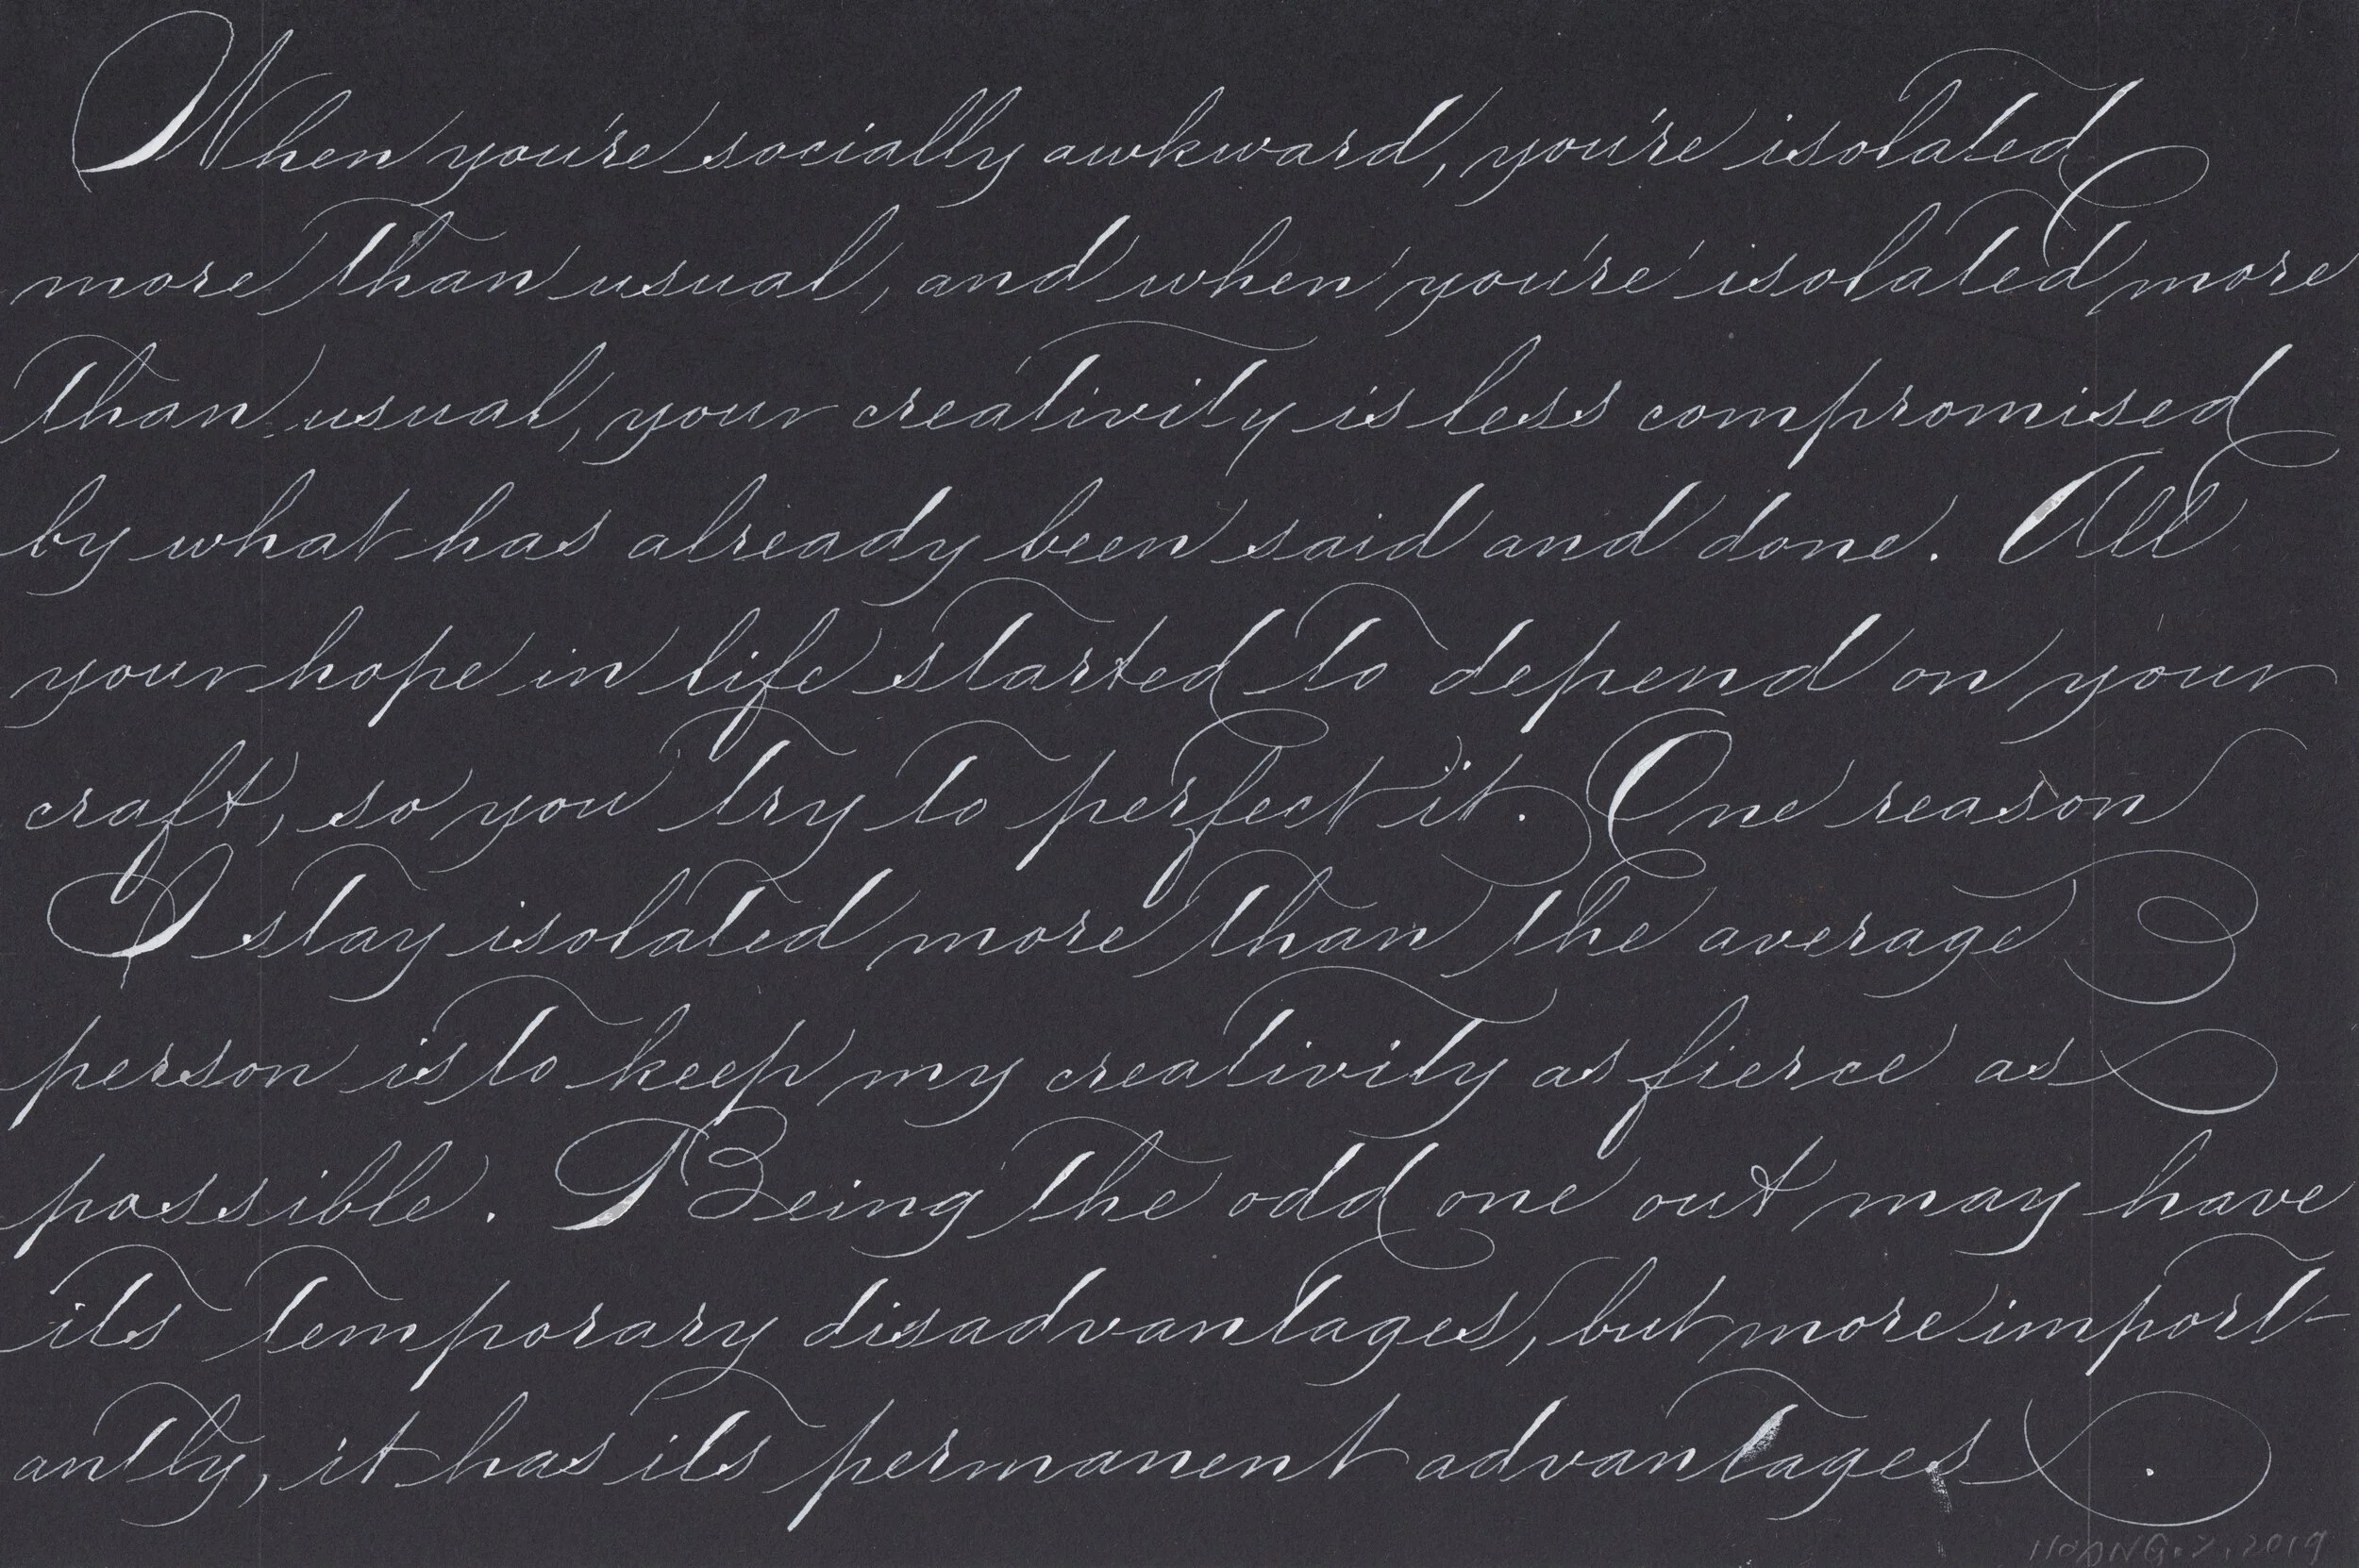 When you're socially awkward, you're isolated
more than usual, and when you're isolated more
than usual, your creativity is less compromised
by what has already been said and done. All
your hope in life started to depend on your
craft, so you try to perfect it. One reason
I stay isolated more than the average
person is to keep my creativity as fierce as
possible. Being the odd one out may have
its temporary disadvantages, but more import-
antly, it has its permanent advantages.
2019